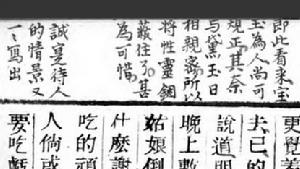 即此看來宝
玉為人尚可
規正其奈
与黛玉日
相親密所以
将性靈錮
蔽住了甚
為可惜
誠寔待人
的情景又
一一寫出
更覺着
去已的
說道明
晚上數
姑娘倒
什麽謝
吃的頑
人倘或
要吃虧